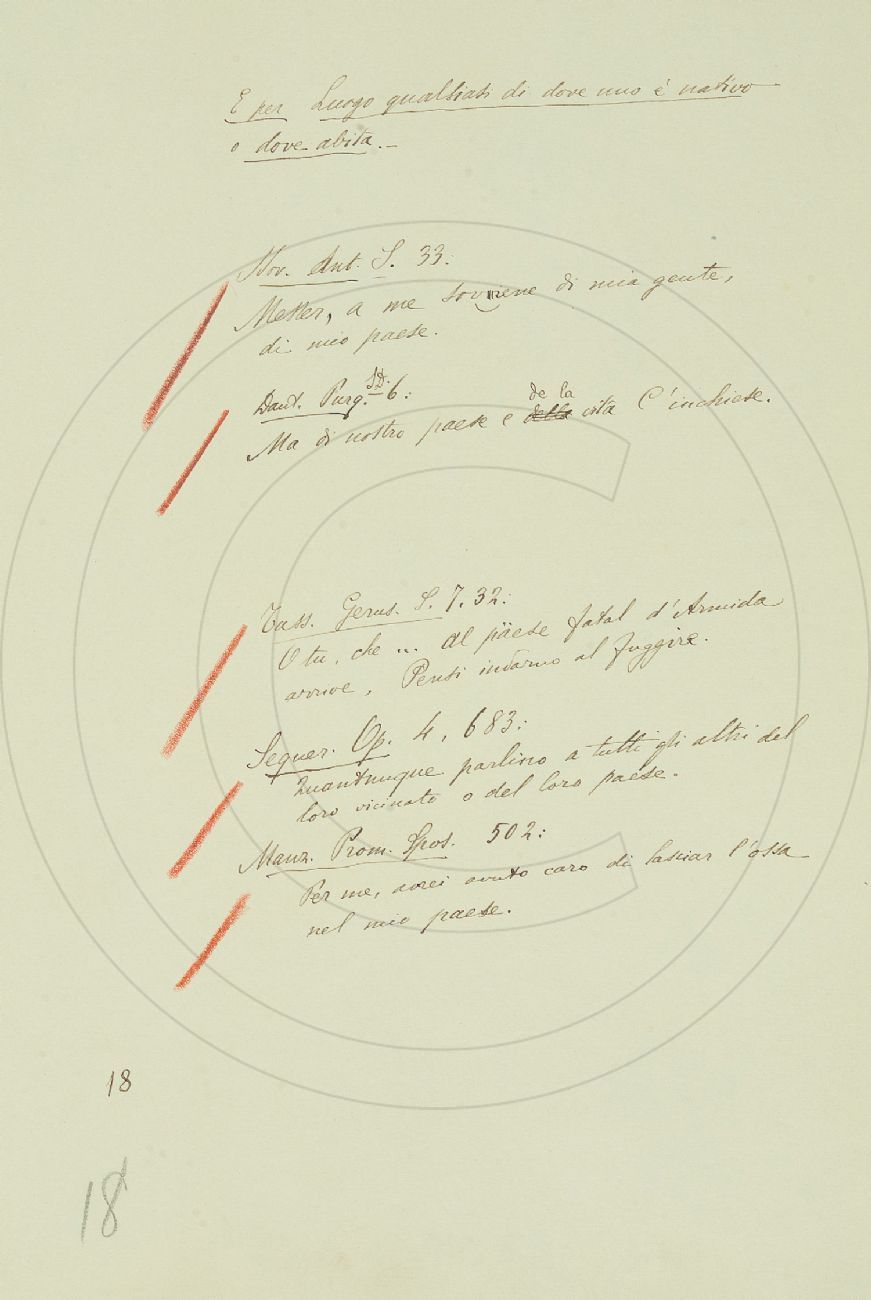 E per Luogo qualsiasi di dove uno è nativo
o dove abita. –
Nov. Ant. S. 33:
Messer, a me sovviene di mia gente,
di mio paese.
Dant. Purg. 6:
Ma di nostro paese e de la vita C'inchiese.
Tass. Gerus. S. 7. 32:
O tu, che ... al päese fatal d'Armida
arrive, Pensi indarno al fuggire.
Segner. Op. 4, 683:
Quantunque parlino a tutti gli altri del
loro vicinato o del loro paese.
Manz. Prom. Spos. 502:
Per me, avrei avuto caro di lasciar l'ossa
nel mio paese.
18
18